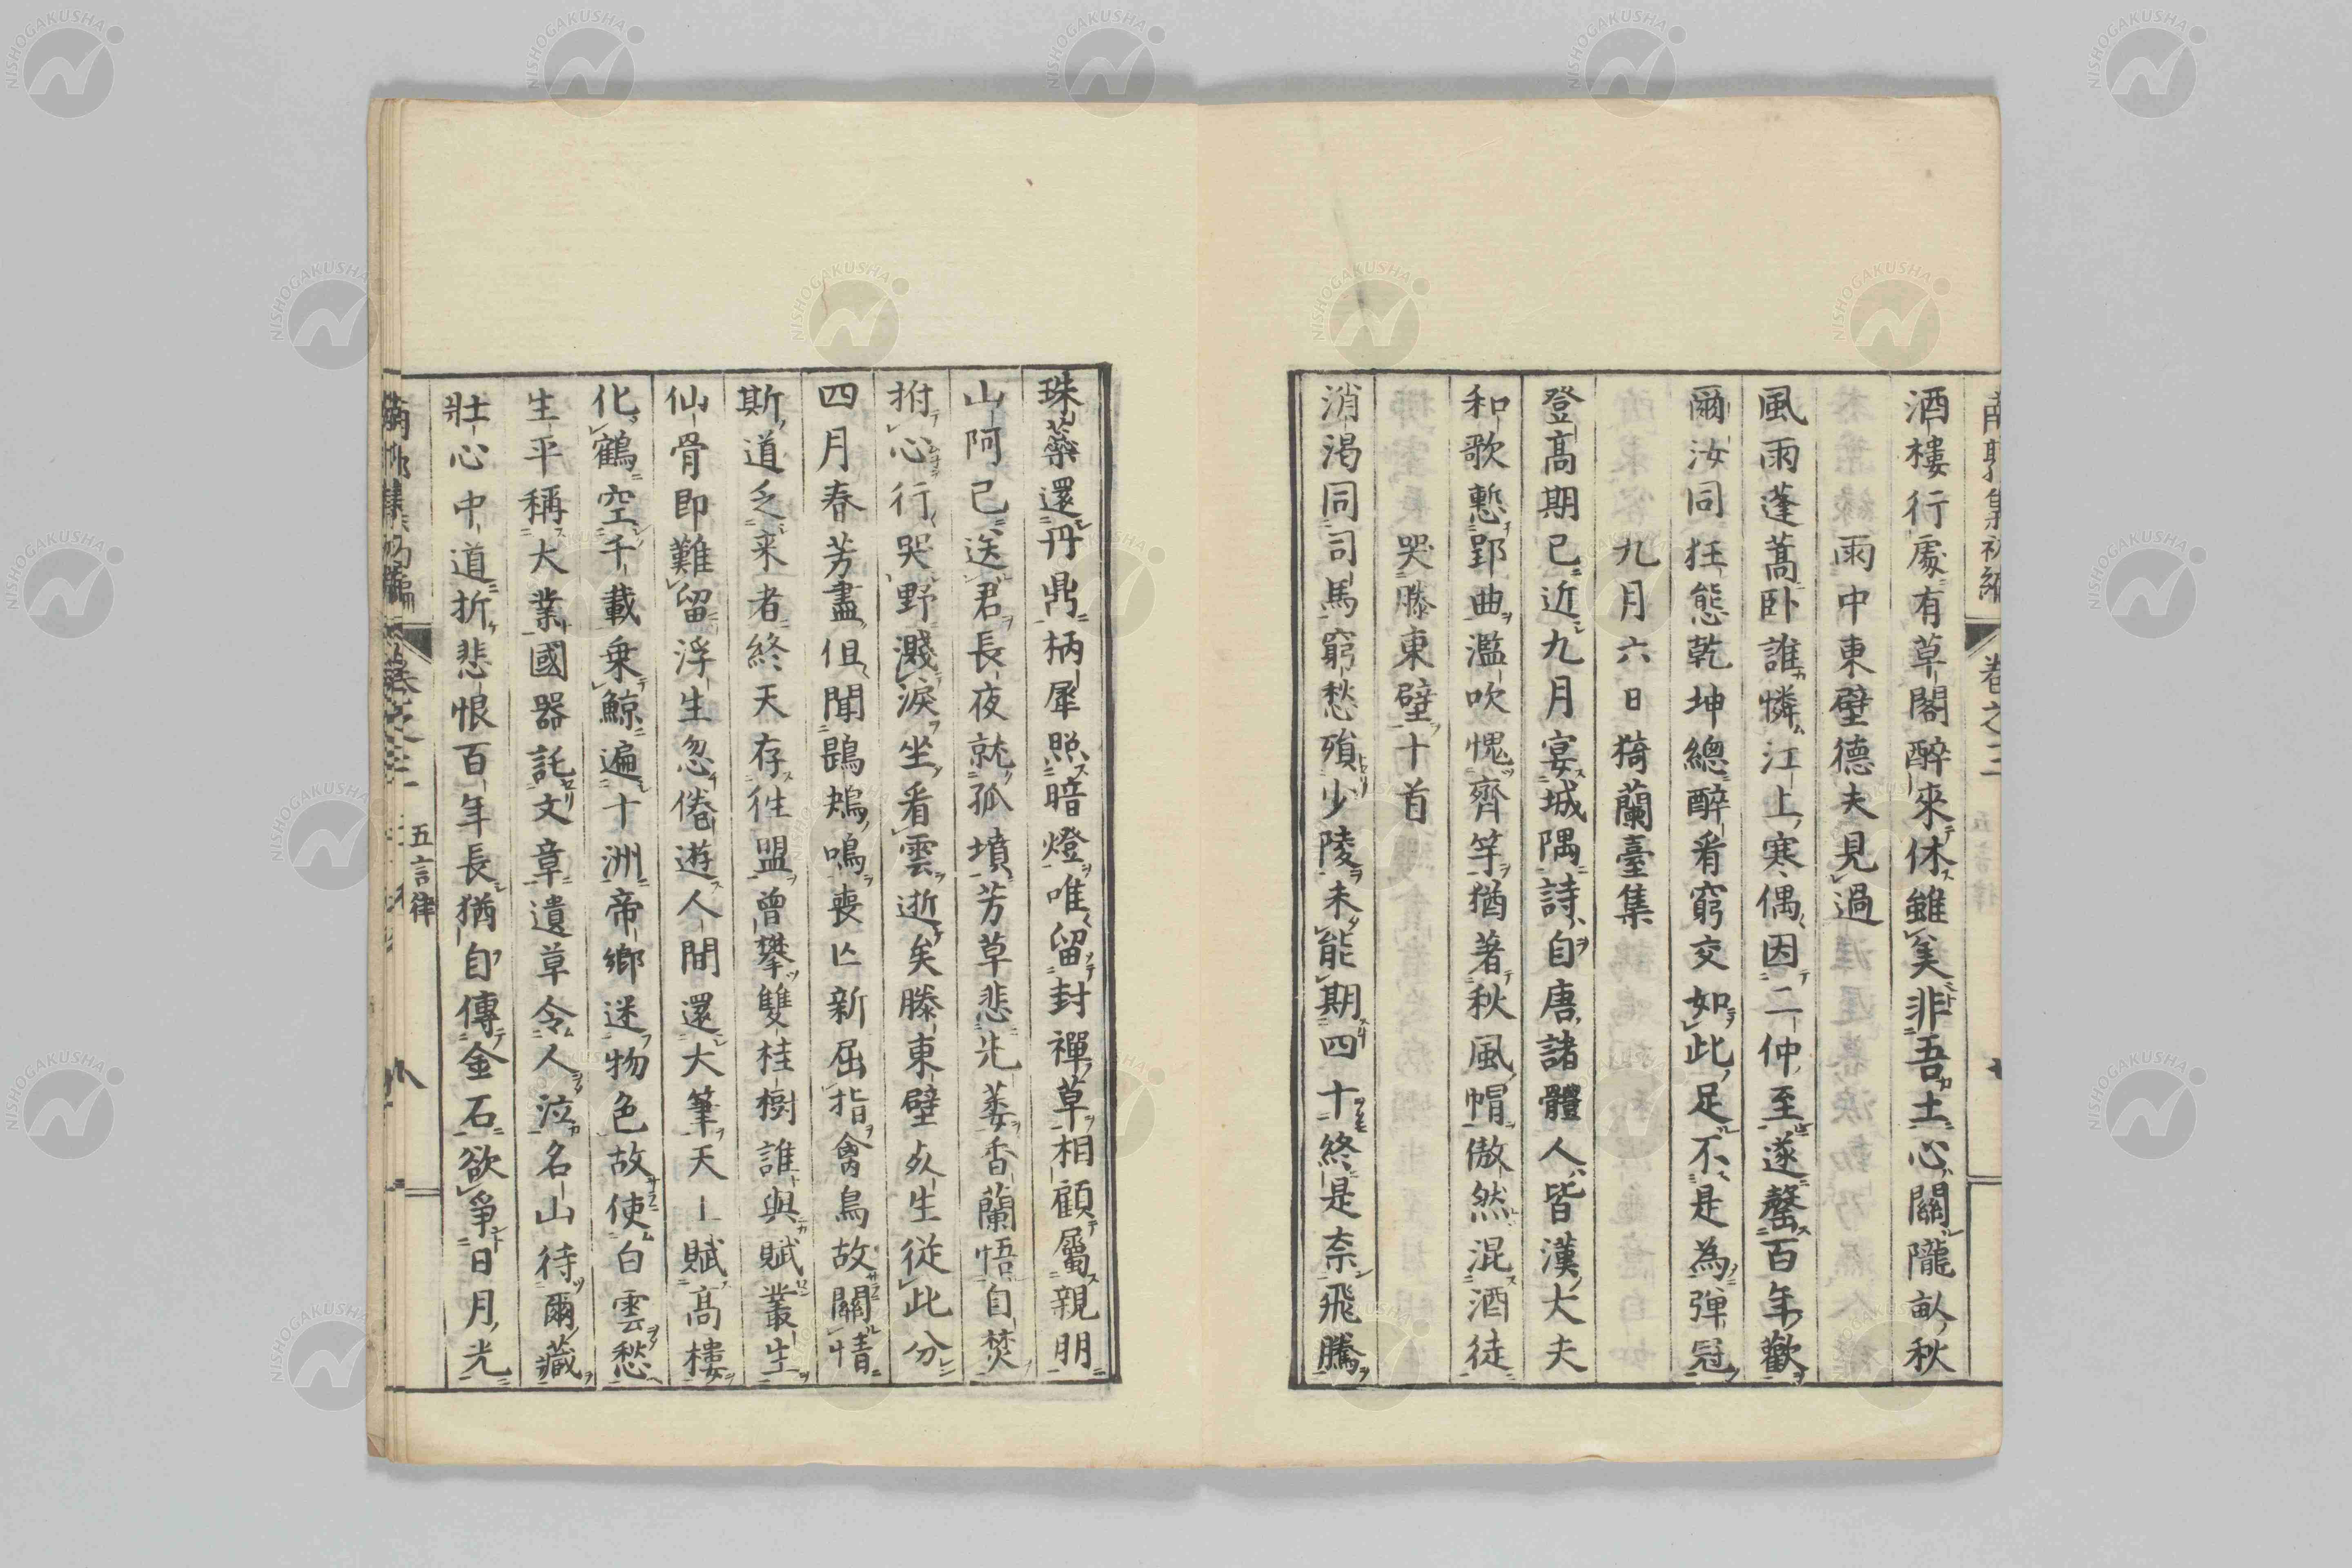 南郭集初編 卷之三
酒樓行處有草閣醉來休雖美非吾土心關隴畝秋
雨中東壁德夫見過
風雨蓬蒿臥誰憐江上寒偶因二仲至遂罄百年歡
爾汝同狂態乾坤總醉看窮交如此足不是為彈冠
九月六日猗蘭臺集
登高期已近九月宴城隅詩自唐諸體人皆漢大夫
和歌慙郢曲濫吹愧齊竽猶著秋風帽傲然混酒徒
哭滕東壁十首
消渴同司馬窮愁殞少陵未能期四十終是柰飛騰
珠藥還丹鼎柄犀照暗燈唯留封禪草相顧屬親朋
山阿已送君長夜就孤墳芳草悲先萎香蘭悟自焚
拊心行哭野濺淚坐看雲逝矣滕東壁久生從此分
四月春芳盡但聞鵾鴂鳴喪亡新屈指禽鳥故關情
斯道乏来者終天存徃盟曾攀雙桂樹誰與賦叢生
仙骨即難留浮生忽倦遊人間還大筆天上賦高樓
化鶴空千載乗鯨遍十洲帝鄉迷物色故使白雲愁
生平稱大業國器託文章遺草令人泣名山待爾藏
壯心中道折悲恨百年長猶自傳金石欲爭日月光
五言律